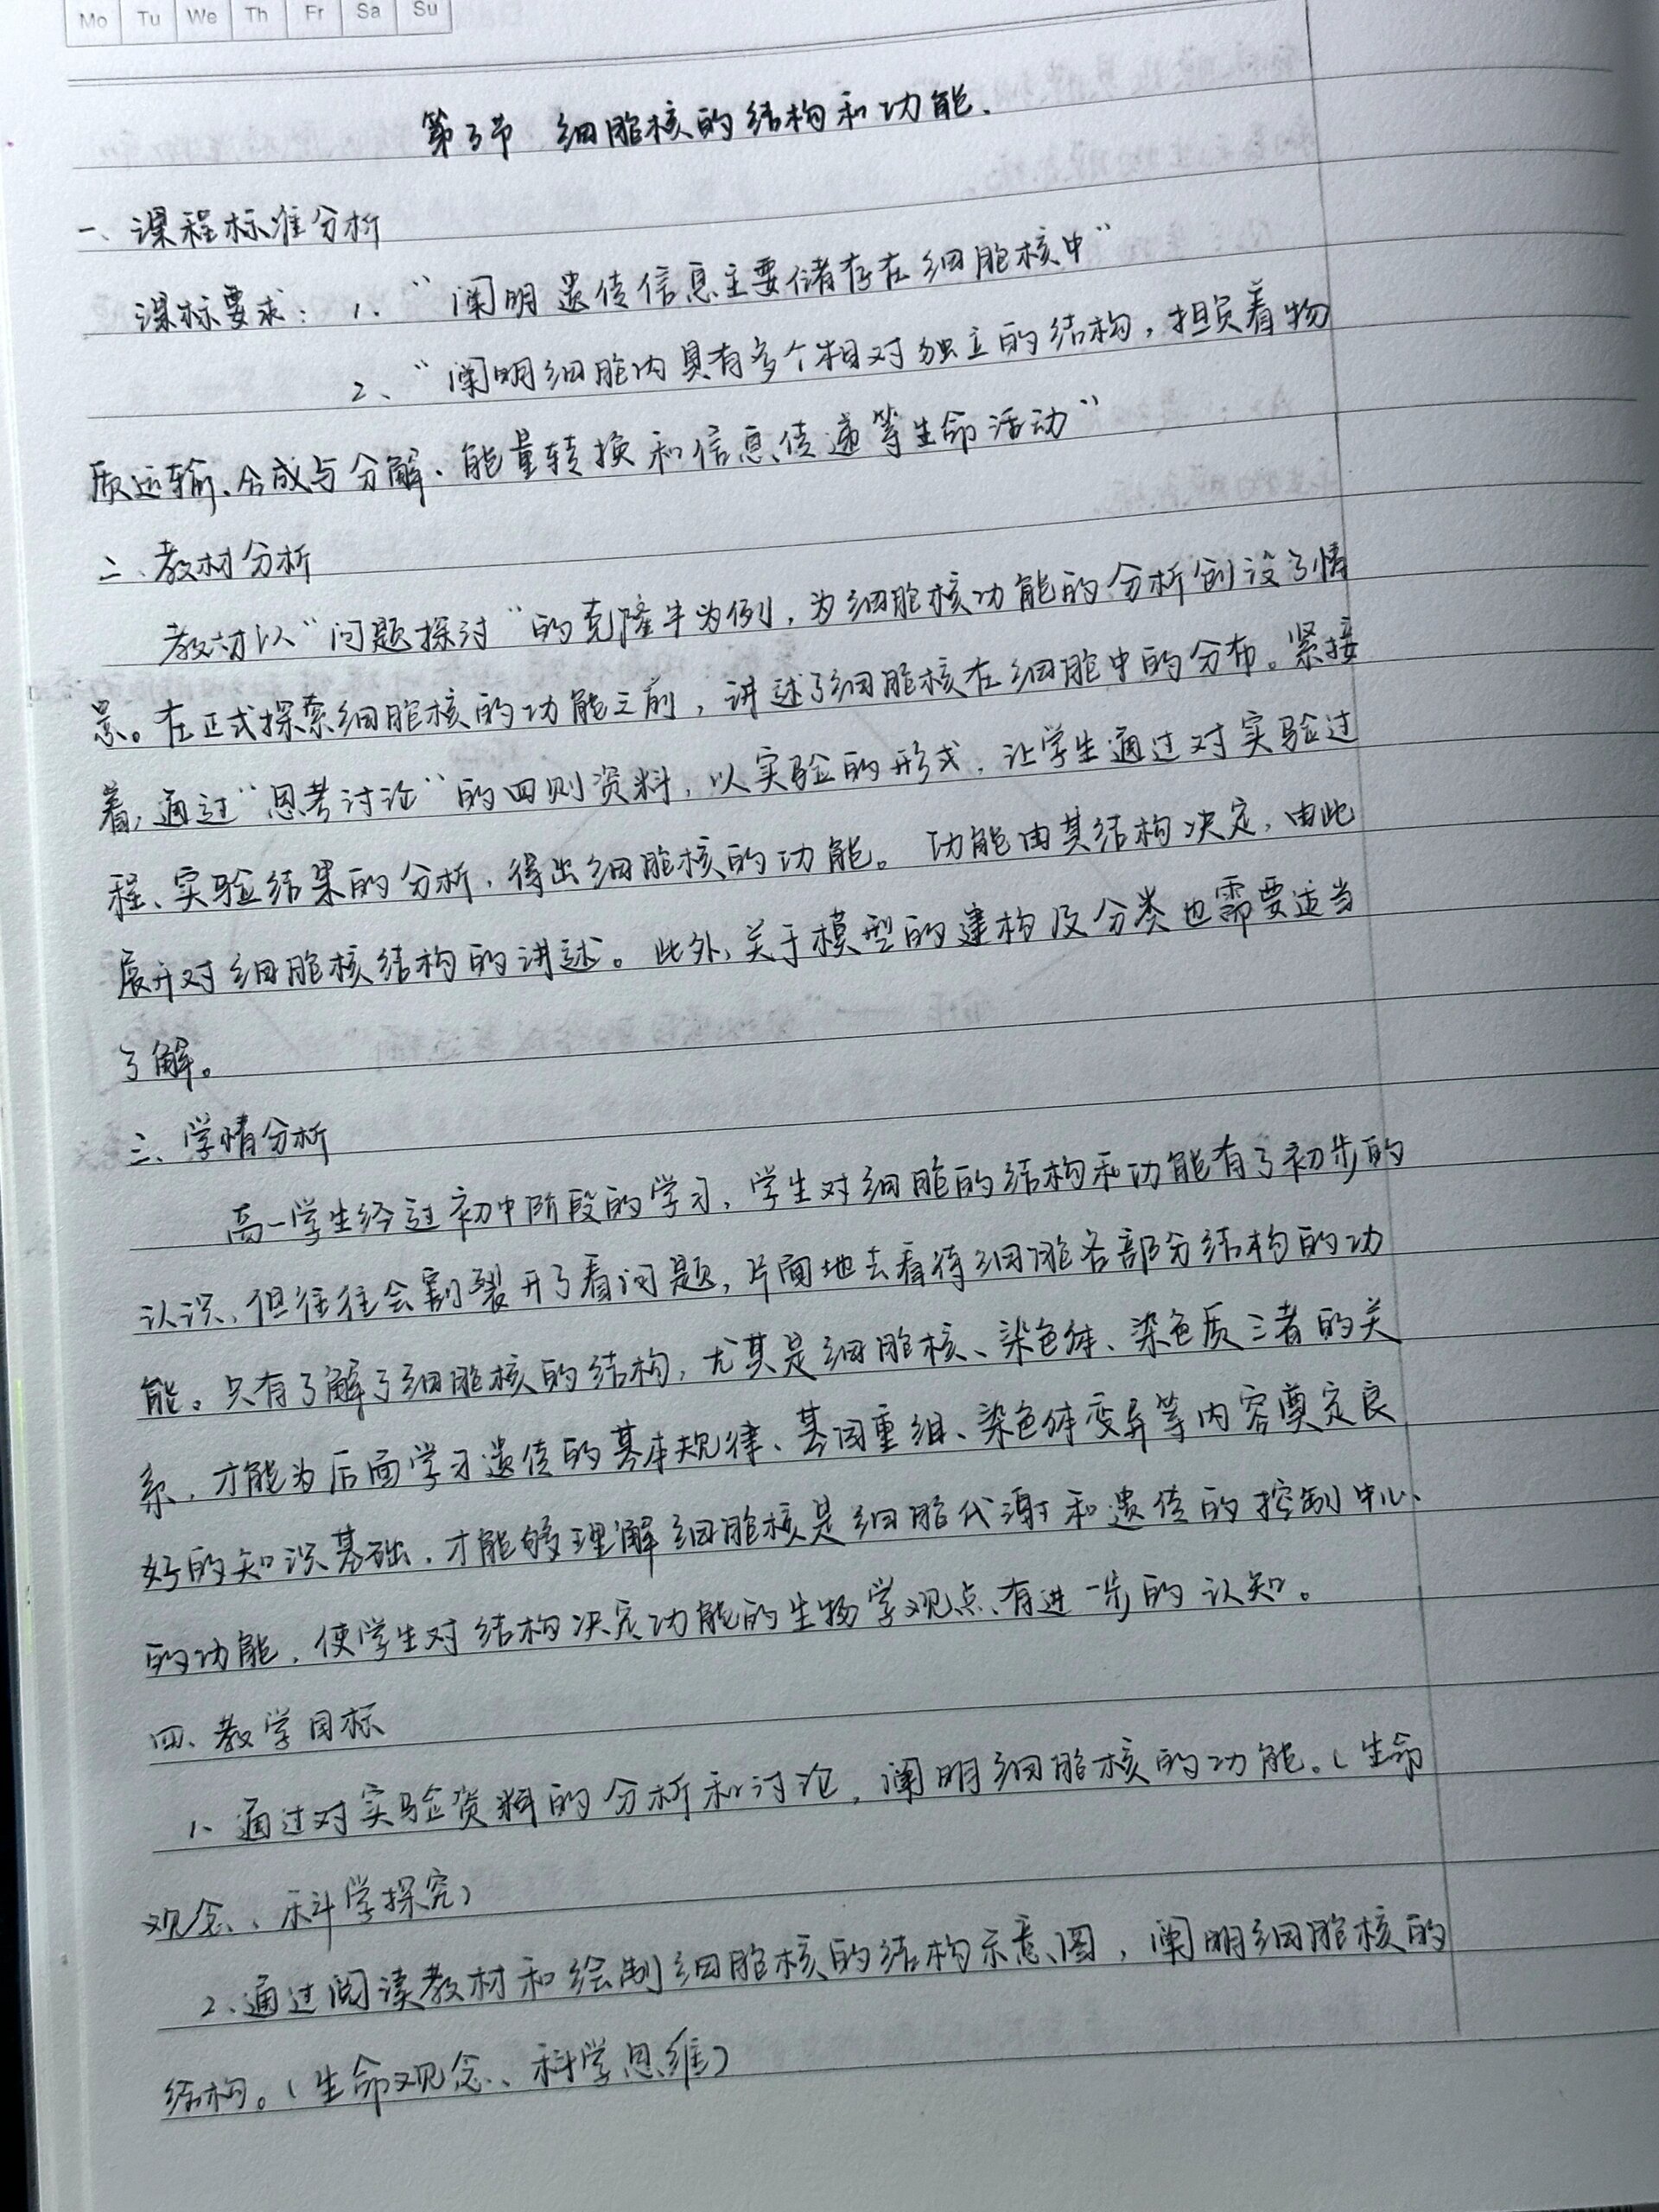 Mo Tu We Th Fr Sa Su
第3节 细胞核的结构和功能.
一、课程标准分析
课标要求：1、“阐明遗传信息主要储存在细胞核中”
2、“阐明细胞内具有多个相对独立的结构，担负着物
质运输、合成与分解、能量转换和信息传递等生命活动”
二、教材分析
教材以“问题探讨”的克隆牛为例，为细胞核功能的分析创设了情
景。在正式探索细胞核的功能之前，讲述了细胞核在细胞中的分布。紧接
着，通过“思考讨论”的四则资料，以实验的形式，让学生通过对实验过
程、实验结果的分析，得出细胞核的功能。功能由其结构决定，由此
展开对细胞核结构的讲述。此外，关于模型的建构及分类也需要适当
了解。
三、学情分析
高一学生经过初中阶段的学习，学生对细胞的结构和功能有了初步的
认识，但往往会割裂开了看问题，片面地去看待细胞各部分结构的功
能。只有了解了细胞核的结构，尤其是细胞核、染色体、染色质三者的关
系，才能为后面学习遗传的基本规律、基因重组、染色体变异等内容奠定良
好的知识基础，才能够理解细胞核是细胞代谢和遗传的控制中心
的功能，使学生对结构决定功能的生物学观点有进一步的认知。
四、教学目标
1、通过对实验资料的分析和讨论，阐明细胞核的功能。（生命
观念、科学探究）
2、通过阅读教材和绘制细胞核的结构示意图，阐明细胞核的
结构。（生命观念、科学思维）